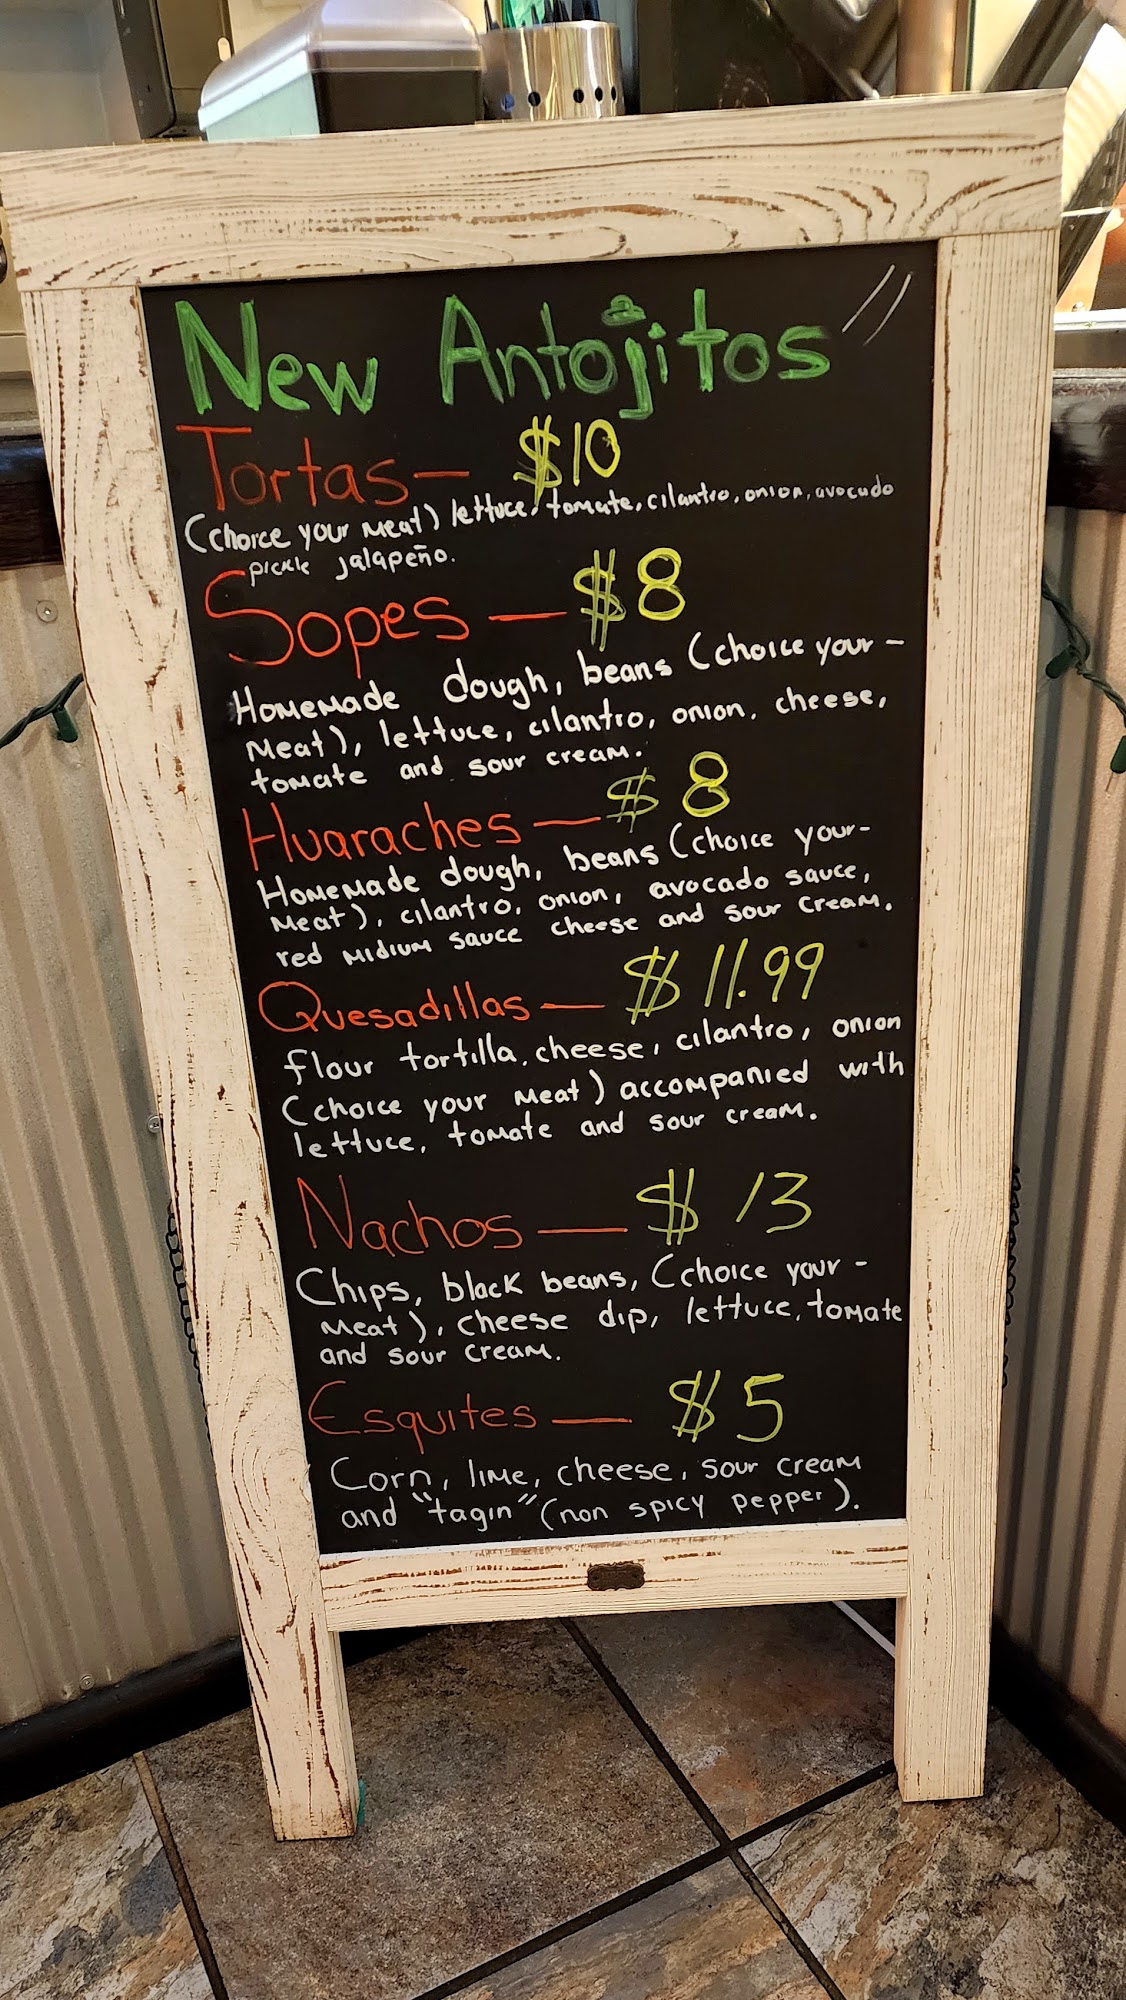 New Antojitos
Tortas— $10
(choice your meat) lettuce, tomate, cilantro, onion, avocado
pickle jalapeño.
Sopes — $8
Homemade dough, beans (choice your -
meat), lettuce, cilantro, onion, cheese,
tomate and sour cream.
Huaraches — $8
Homemade dough, beans (choice your-
meat), cilantro, onion, avocado sauce,
red midium sauce cheese and sour cream.
Quesadillas — $11.99
flour tortilla, cheese, cilantro, onion
(choice your meat) accompanied with
lettuce, tomate and sour cream.
Nachos — $13
Chips, black beans, (choice your -
meat), cheese dip, lettuce, tomate
and sour cream.
Esquites — $5
Corn, lime, cheese, sour cream
and "tagin" (non spicy pepper).